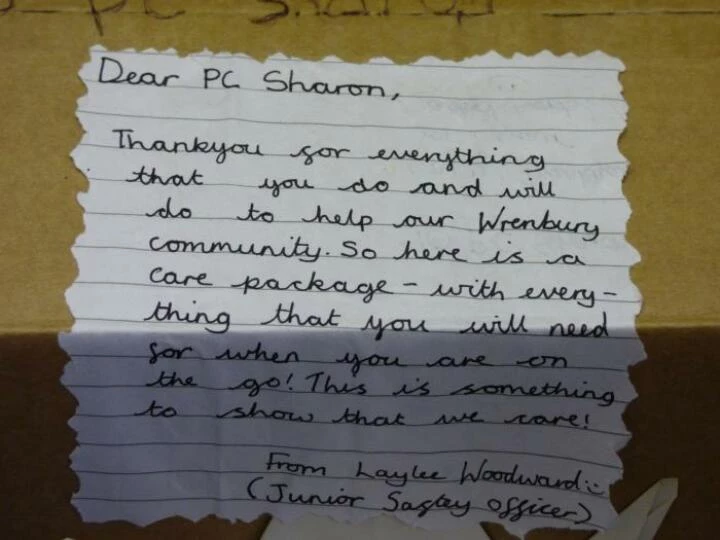 PC Sharon
Dear PC Sharon,
Thankyou for everything
that you do and will
do to help our Wrenbury
community. So here is a
care package - with every-
thing that you will need
for when you are on
the go! This is something
to show that we care!
From Laylee Woodward :)
(Junior Safety Officer)